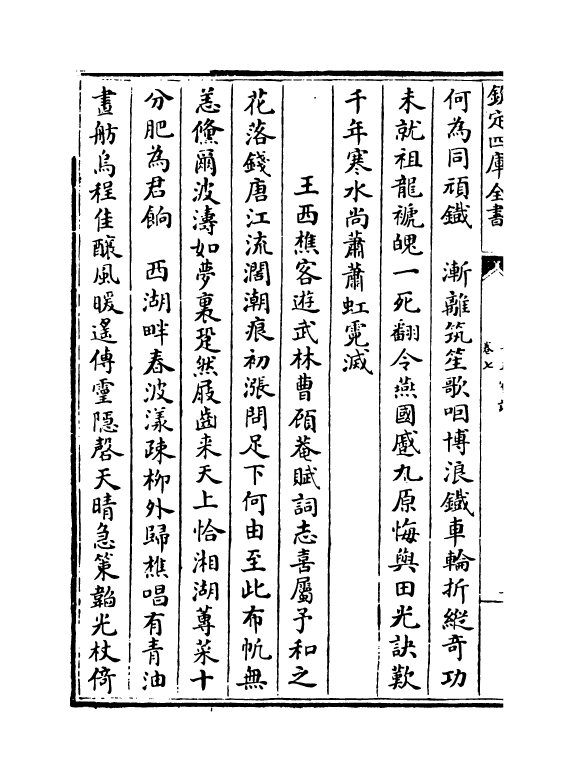 欽定四庫全書
卷七
何為同頑鐡　漸離筑笙歌咽博浪鐡車輪折縱竒功
未就祖龍褫魄一死翻令燕國蹙九原悔與田光訣歎
千年寒水尚蕭蕭虹霓滅
王西樵客遊武林曹顧菴賦詞志喜屬予和之
花落錢唐江流濶潮痕初漲問足下何由至此布帆無
恙儵爾波濤如夢裏跫然屐齒来天上恰湘湖蓴菜十
分肥為君餉　西湖畔春波漾疎柳外歸樵唱有青油
畫舫烏程佳釀風暖遙傳靈隱磬天晴急策韜光杖倚